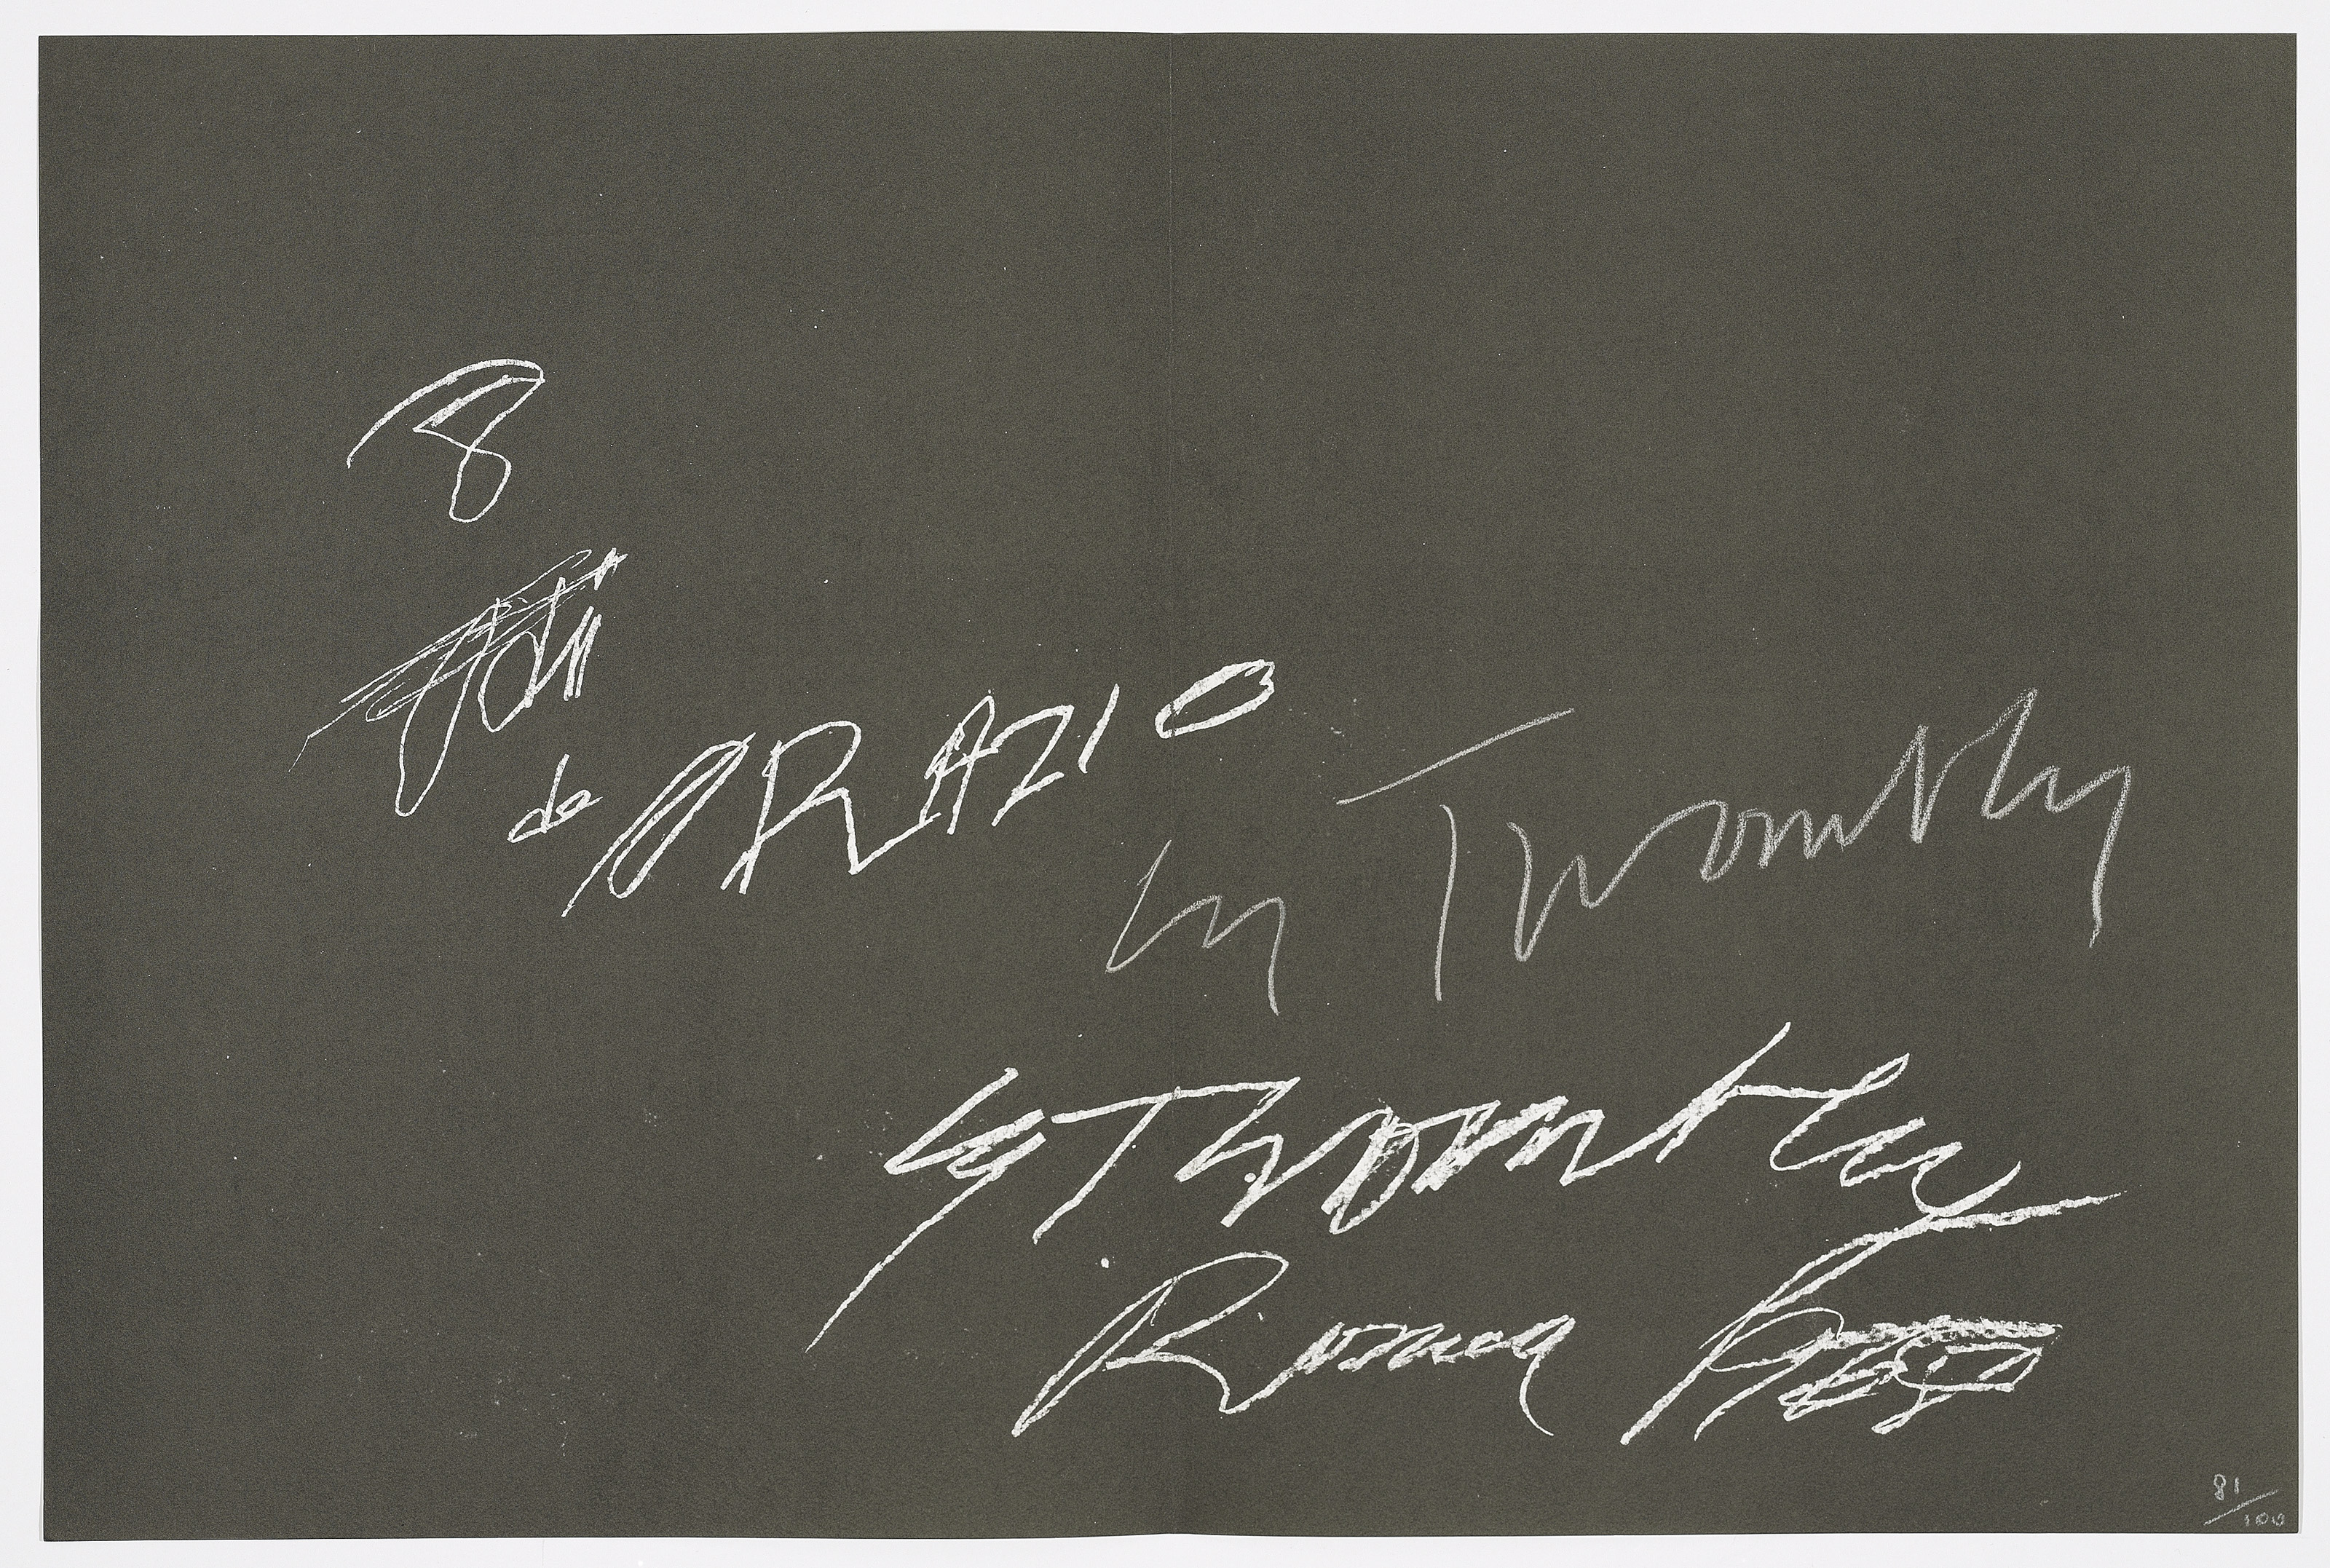 8
Odi
de ORAZIO
Cy Twombly
Cy Twombly
Roma
81/100